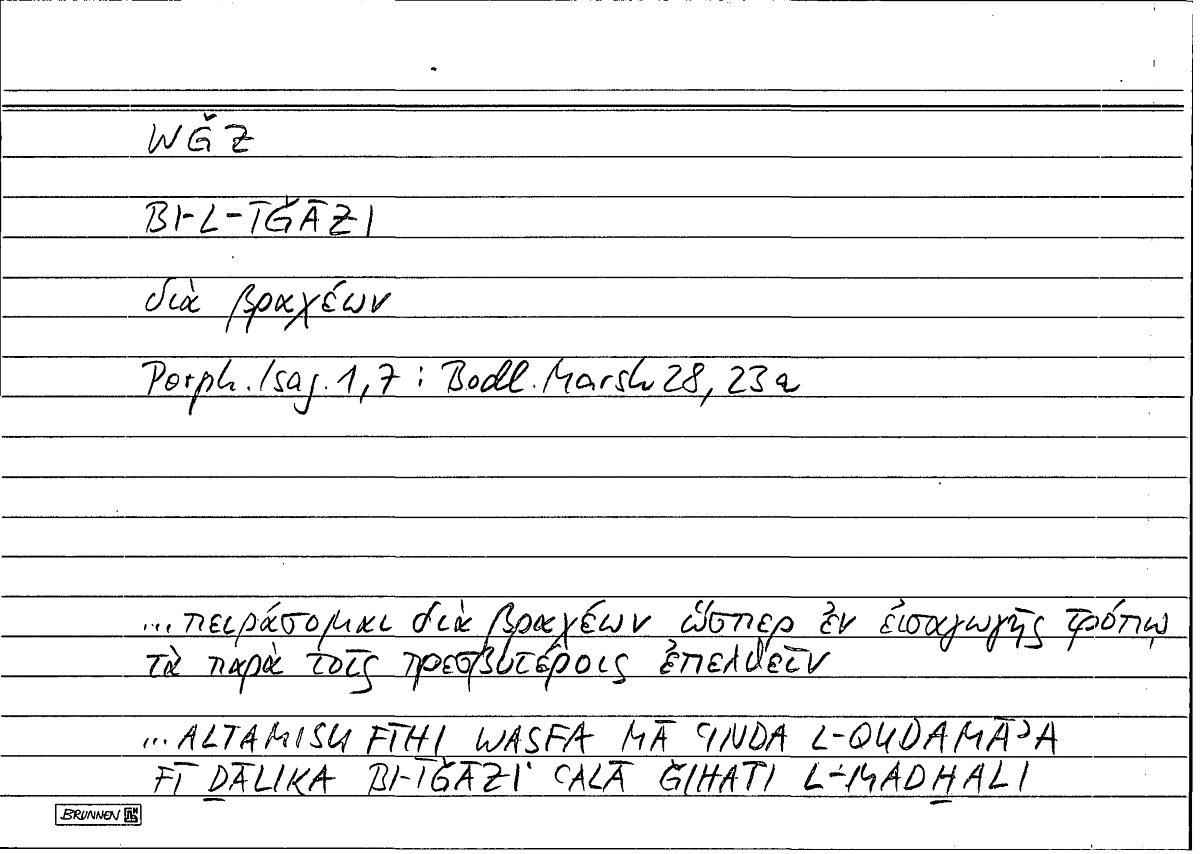 WǦZ
BI-L-ĪǦĀZI
διὰ βραχέων
Porph. Isag. 1,7 : Bodl. Marsh 28, 23a
... πειράσομαι διὰ βραχέων ὥσπερ ἐν εἰσαγωγῆς τρόπῳ
τὰ παρὰ τοῖς πρεσβυτέροις ἐπελθεῖν
... ALTAMISU FĪHI WASFA MĀ ʿINDA L-QUDAMĀʾA
FĪ ḎĀLIKA BI-ĪǦĀZI ʿALĀ ǦIHATI L-MADḪALI
BRUNNEN